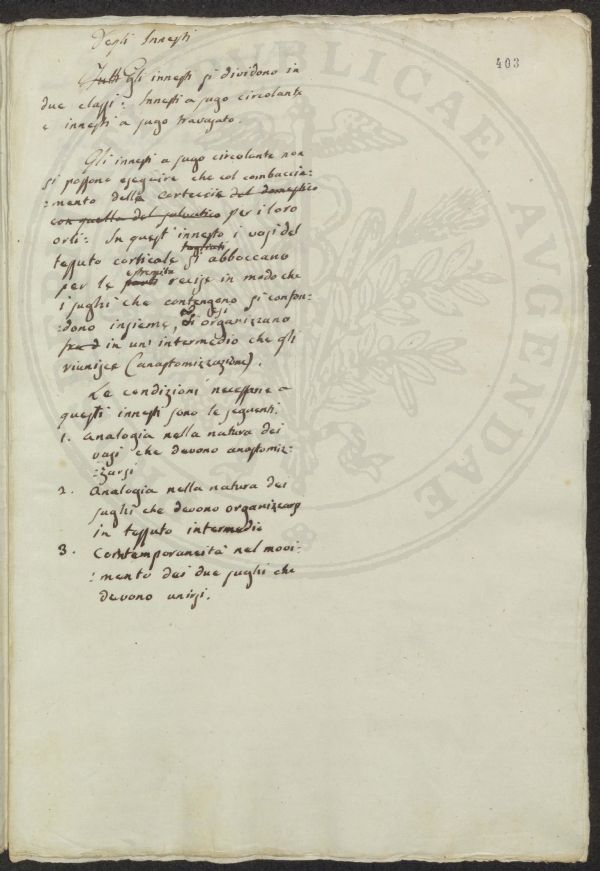 Degli Innesti
403
Tutti Gli innesti si dividono in
due classi: Innesti a sugo circolante
e innesti a sugo travasato.
Gli innesti a sugo circolante non
si possono eseguire che col combaccia-
:mento della corteccia del domestico
con quella del salvatico per i loro
orli: In quest' innesto i vasi del
tagliati
tessuto corticale si abboccano
estremità
per le parti recise in modo che
i sughi che contengono si confon-
:dono insieme, si organizzano
fra d in un' intermedio che gli
riunisce (anastomizzazione).
Le condizioni necessarie a
questi innesti sono le seguenti.
1. Analogia nella natura dei
vasi che devono anastomiz-
:zarsi
2. Analogia nella natura dei
sughi che devono organizzarsi
in tessuto intermedio
3. Contemporaneità nel movi-
:mento dei due sughi che
devono unirsi.
PUBLICAE
AVGENDAE